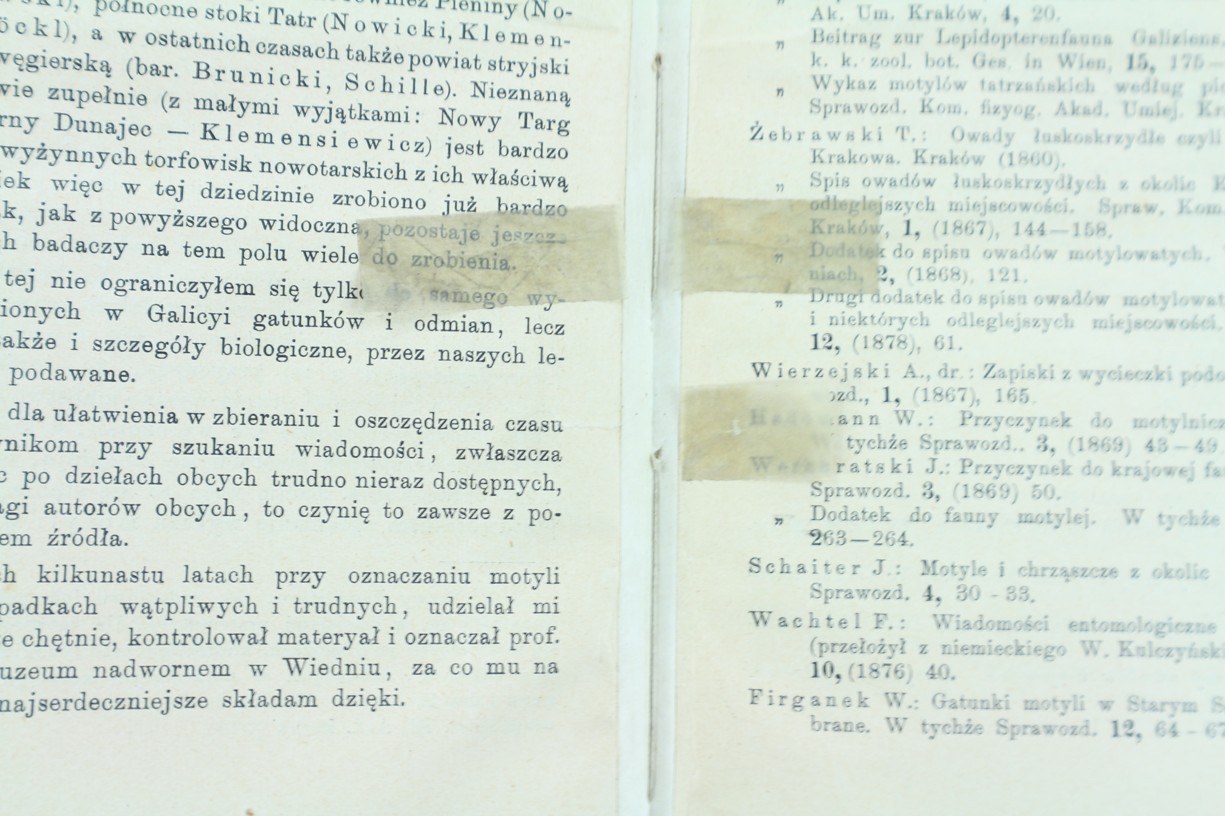 północne stoki Tatr (Nowicki, Klemen-
a w ostatnich czasach także powiat stryjski
węgierską (bar. Brunicki, Schille). Nieznaną
zupełnie (z małymi wyjątkami: Nowy Targ
Dunajec — Klemensiewicz) jest bardzo
wyżynnych torfowisk nowotarskich z ich właściwą
więc w tej dziedzinie zrobiono już bardzo
k, jak z powyższego widoczna, pozostaje jeszcze
h badaczy na tem polu wiele do zrobienia.
tej nie ograniczyłem się tylko do samego wy-
ionych w Galicyi gatunków i odmian, lecz
akże i szczegóły biologiczne, przez naszych le-
podawane.
dla ułatwienia w zbieraniu i oszczędzenia czasu
nikom przy szukaniu wiadomości, zwłaszcza
c po dziełach obcych trudno nieraz dostępnych,
agi autorów obcych, to czynię to zawsze z po-
em źródła.
h kilkunastu latach przy oznaczaniu motyli
padkach wątpliwych i trudnych, udzielał mi
e chętnie, kontrolował materyał i oznaczał prof.
uzeum nadwornem w Wiedniu, za co mu na
najserdeczniejsze składam dzięki.
Ak. Um. Kraków, 4, 20.
„ Beitrag zur Lepidopterenfauna Galiziens.
k. k. zool. bot. Ges. in Wien, 15, 175—
„ Wykaz motylów tatrzańskich według
Sprawozd. Kom. fizyog. Akad. Umiej.
Żebrawski T.: Owady łuskoskrzydłe czyli
Krakowa. Kraków (1860).
„ Spis owadów łuskoskrzydłych z okolic
odleglejszych miejscowości. Spraw. Kom.
Kraków, 1, (1867), 144—158.
„ Dodatek do spisu owadów motylowatych.
niach, 2, (1868), 121.
„ Drugi dodatek do spisu owadów motylowat
i niektórych odleglejszych miejscowości.
12, (1878), 61.
Wierzejski A., dr.: Zapiski z wycieczki podo
ozd., 1, (1867), 165.
mann W.: Przyczynek do motylnicz
W tychże Sprawozd.. 3, (1869) 43—49.
Werchratski J.: Przyczynek do krajowej fa
Sprawozd. 3, (1869) 50.
„ Dodatek do fauny motylej. W tychże
263—264.
Schaiter J.: Motyle i chrząszcze z okolic
Sprawozd. 4, 30-33.
Wachtel F.: Wiadomości entomologiczne
(przełożył z niemieckiego W. Kulczyńsk
10, (1876) 40.
Firganek W.: Gatunki motyli w Starym S
brane. W tychże Sprawozd. 12, 64-67